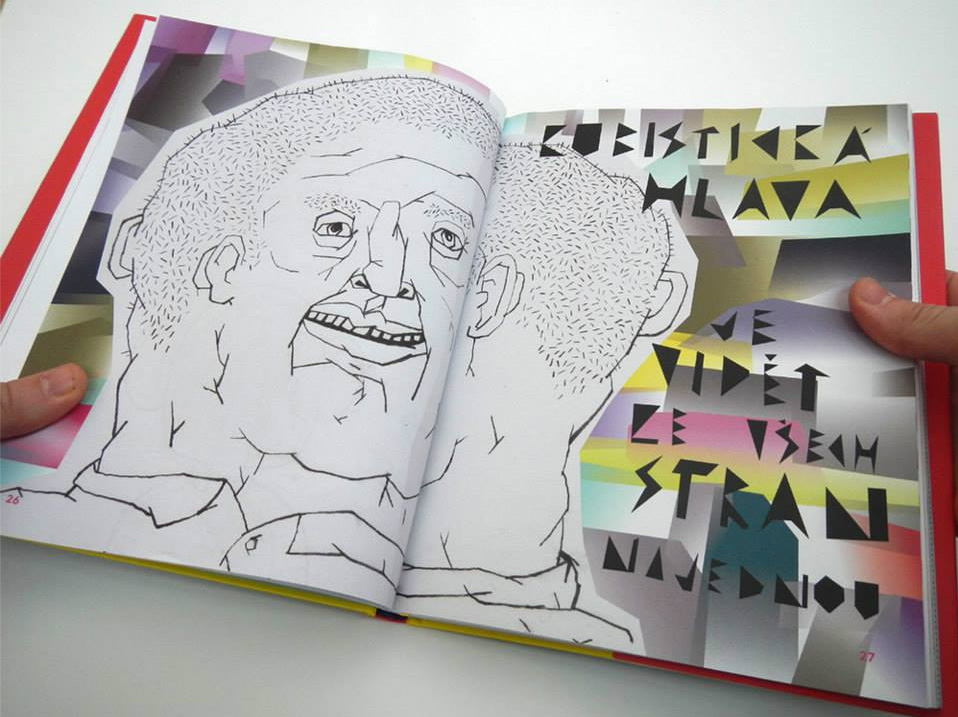 KUBISTICKÁ
HLAVA
JE
VIDĚT
ZE VŠECH
STRAN
NAJEDNOU
26
27